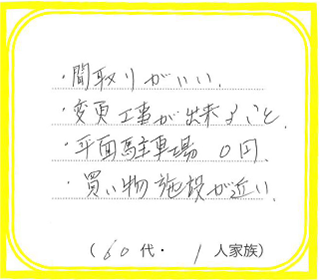 ・間取りがいい.
・変更工事が出来ること.
・平面駐車場 0円.
・買い物施設が近い.
(60代・1人家族)